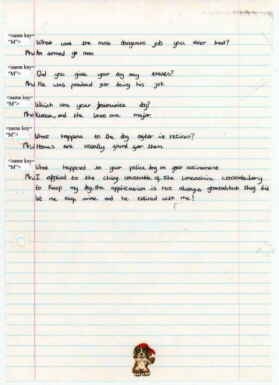 <name key="M"> What was the most dangerous job you ever had?
Mr. An armed go man
<name key="M"> Did you give your dog any treats?
Mr. He was praised for doing his job
<name key="M"> Which was your favourite dog?
Mr. and the last one major.
<name key="M"> What happens to the dog after is retired?
Mr. Homes are usually found for them
<name key="M"> What happened to your police dog on your retirement
Mr. I applied to the chief constable of the Lancashire constabulary
to keep my dog. the application is not always granted but they did
let me keep mine and he retired with me!